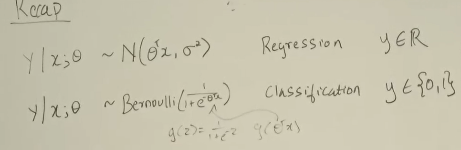 Recap
Y|x;θ ~ N(θᵀx, σ²) Regression y∈ℝ
Y|x;θ ~ Bernoulli(1/(1+e^(-θᵀx))) Classification y∈{0,1}
g(z)=1/(1+e^(-z)) g(θᵀx)